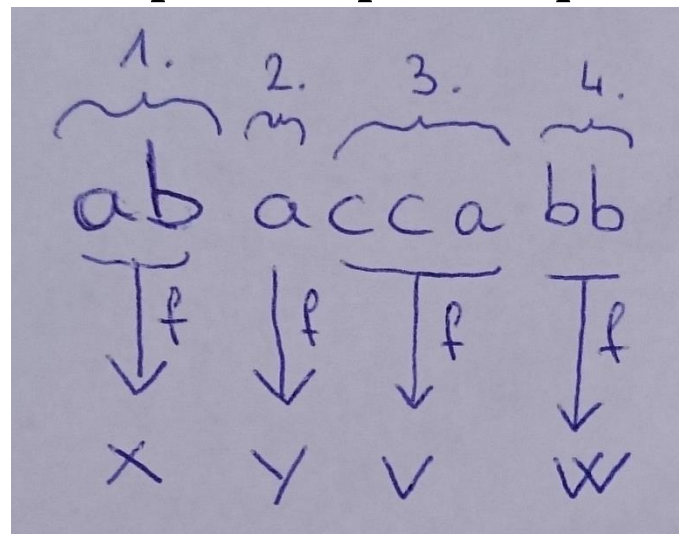 1. 2. 3. 4.
ab a cca bb
f f f f
X Y V W